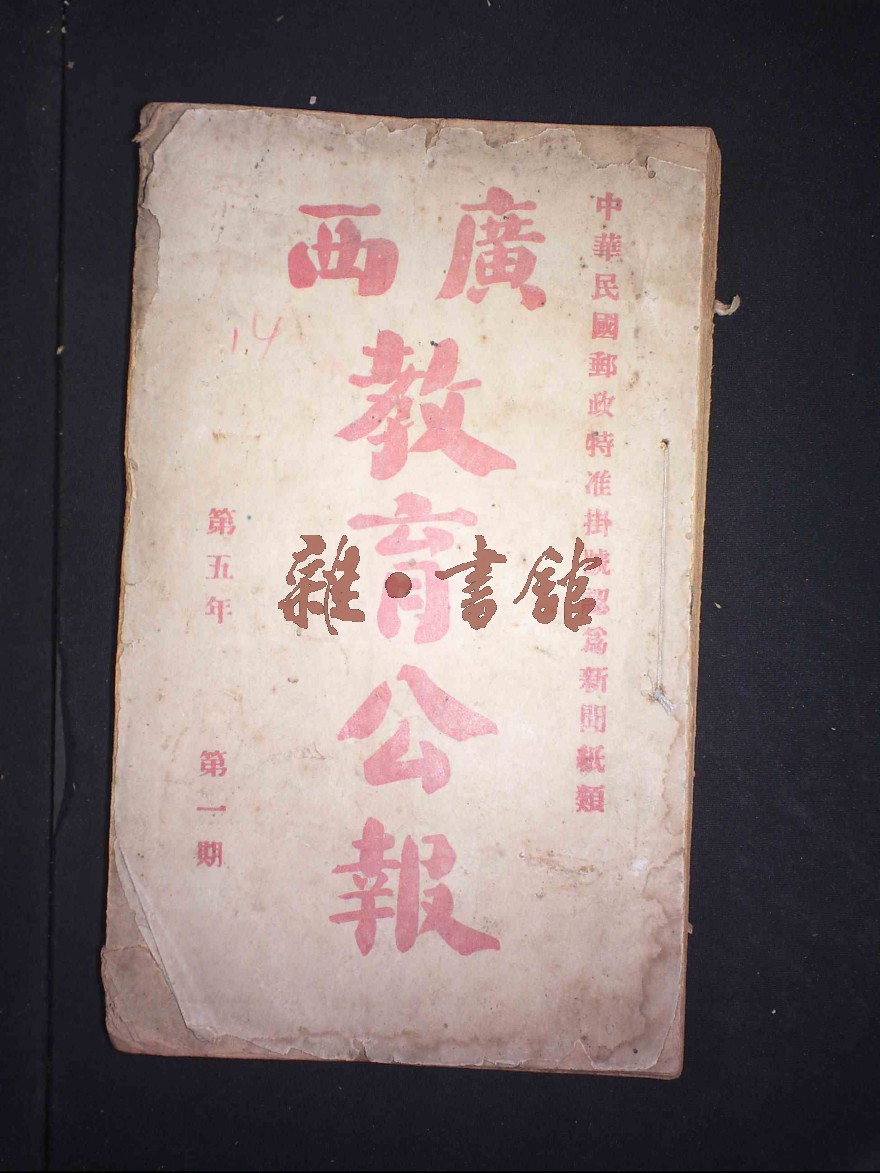 中華民國郵政特准掛號認爲新聞紙類
廣西
教育公報
第五年 第一期
14
雜·書館